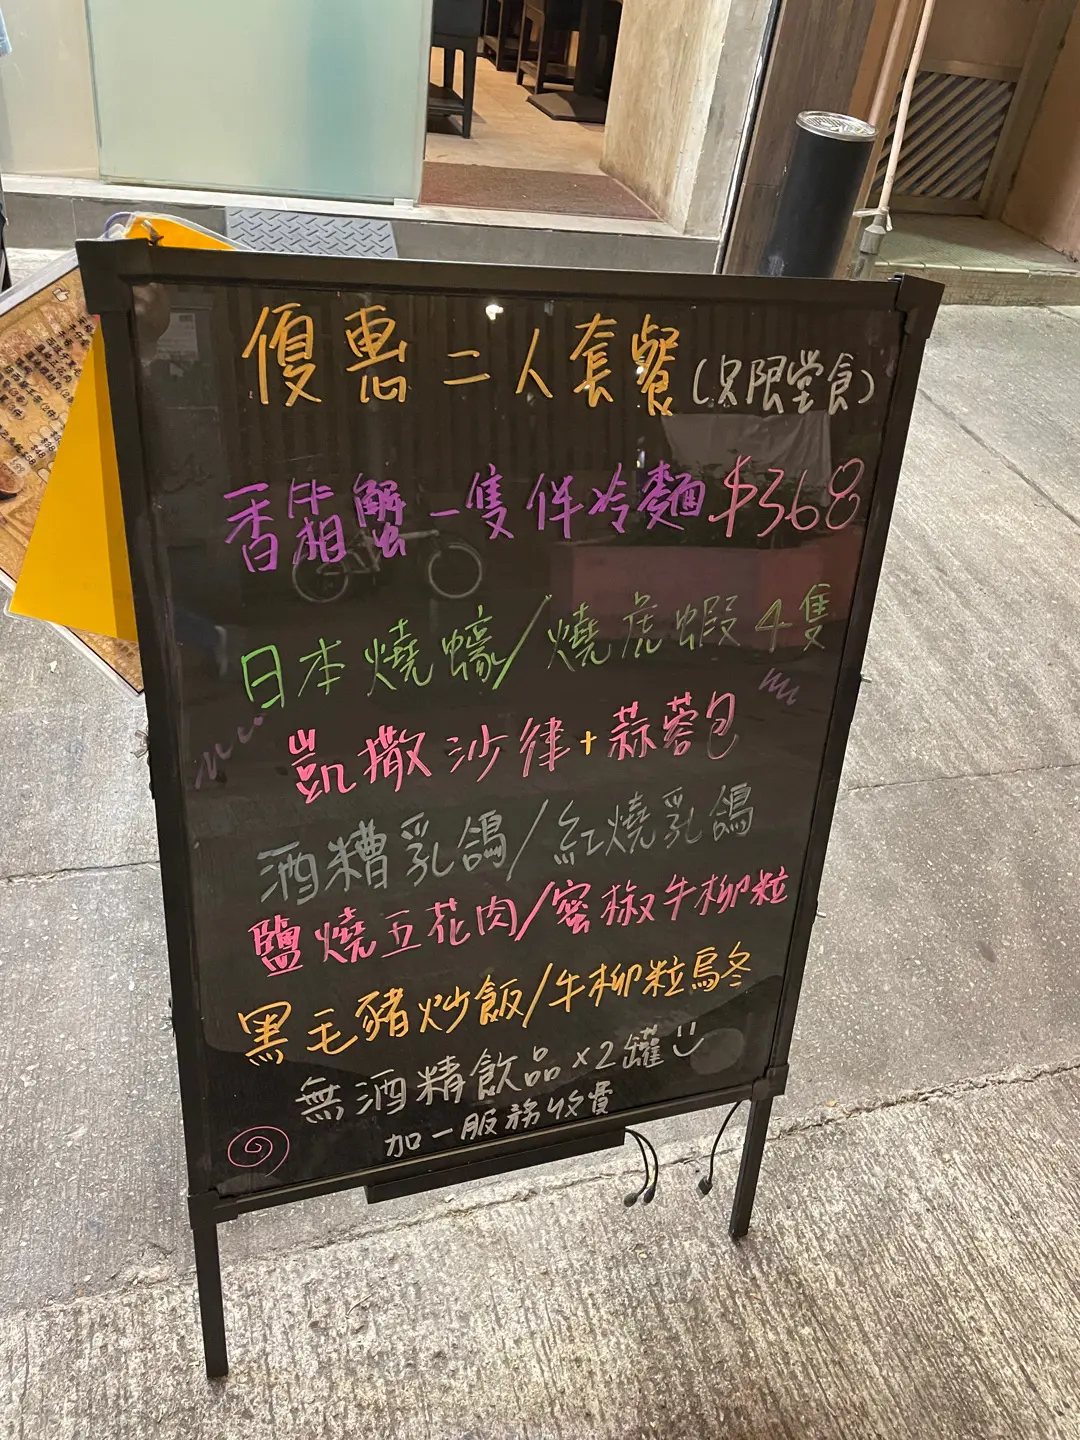 優惠二人套餐(只限堂食)
香箱蟹一隻伴冷麵$368
日本燒蠔/燒虎蝦4隻
凱撒沙律+蒜蓉包
酒糟乳鴿/紅燒乳鴿
鹽燒五花肉/蜜椒牛柳粒
黑毛豬炒飯/牛柳粒烏冬
無酒精飲品x2罐
加一服務收費